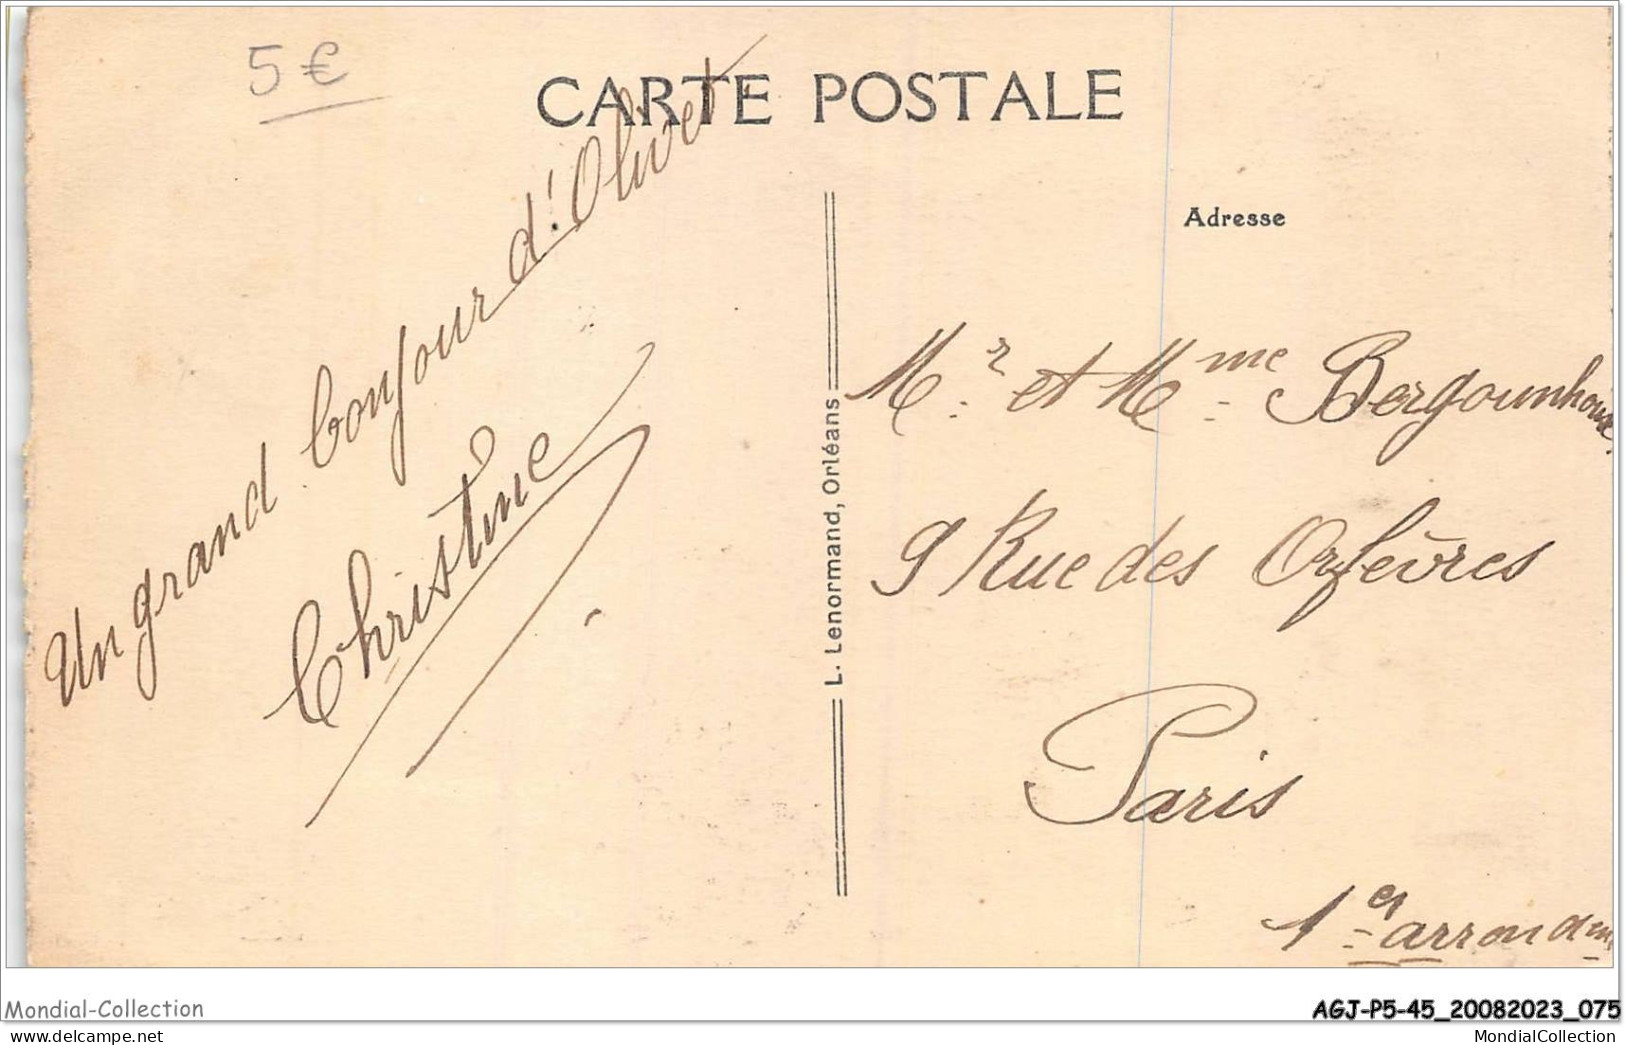 5 €
CARTE POSTALE
Un grand bonjour d'Olivet.
Christine
L. Lenormand, Orléans
Adresse
Mr. et Mme. Bergounhoux
9 Rue des Orfèvres
Paris
1er arrondm
Mondial-Collection
AGJ-P5-45_20082023_075
delcampe.net
MondialCollection